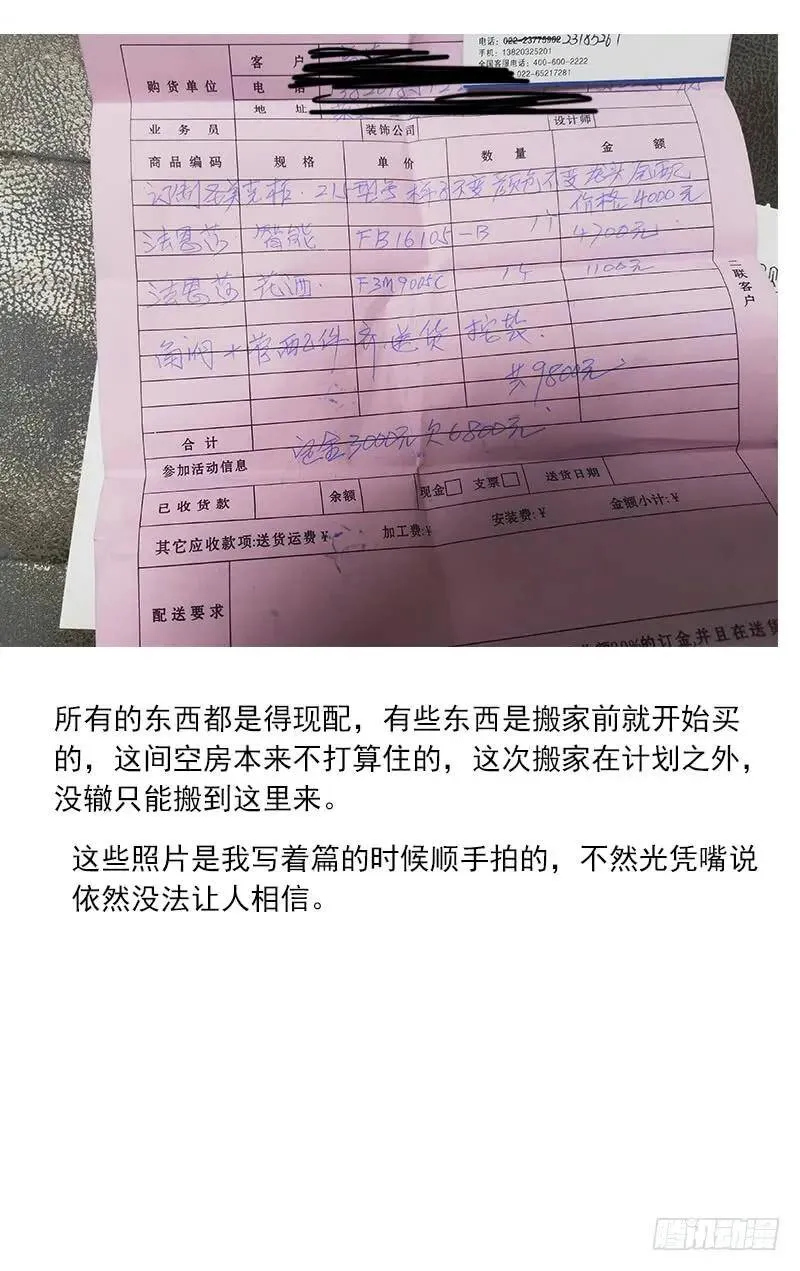 电话: 022-23775992 23185261
手机: 13820325201
全国客服电话: 400-600-2222
022-65217281
购货单位
客 户
电 话
地 址
业 务 员 装饰公司 设计师
商品编码 规 格 单 价 数 量 金 额
订制浴室柜. 215型号 不变 颜色不变 龙头 全配
价格4000元
法恩莎 智能 FB16105-B 1个 4700元
法恩莎 花洒. F3M9005C 1个 1100元
角阀+管配件齐 送货 按装.
共9800元
合 计 定金3000元 欠6800元.
二联客户
参加活动信息
已收货款 余额 现金□ 支票□ 送货日期
其它应收款项:送货运费¥ 加工费:¥ 安装费:¥ 金额小计:¥
配送要求
的订金,并且在送货
所有的东西都是得现配，有些东西是搬家前就开始买
的，这间空房本来不打算住的，这次搬家在计划之外，
没辙只能搬到这里来。
这些照片是我写着篇的时候顺手拍的，不然光凭嘴说
依然没法让人相信。
腾讯动漫